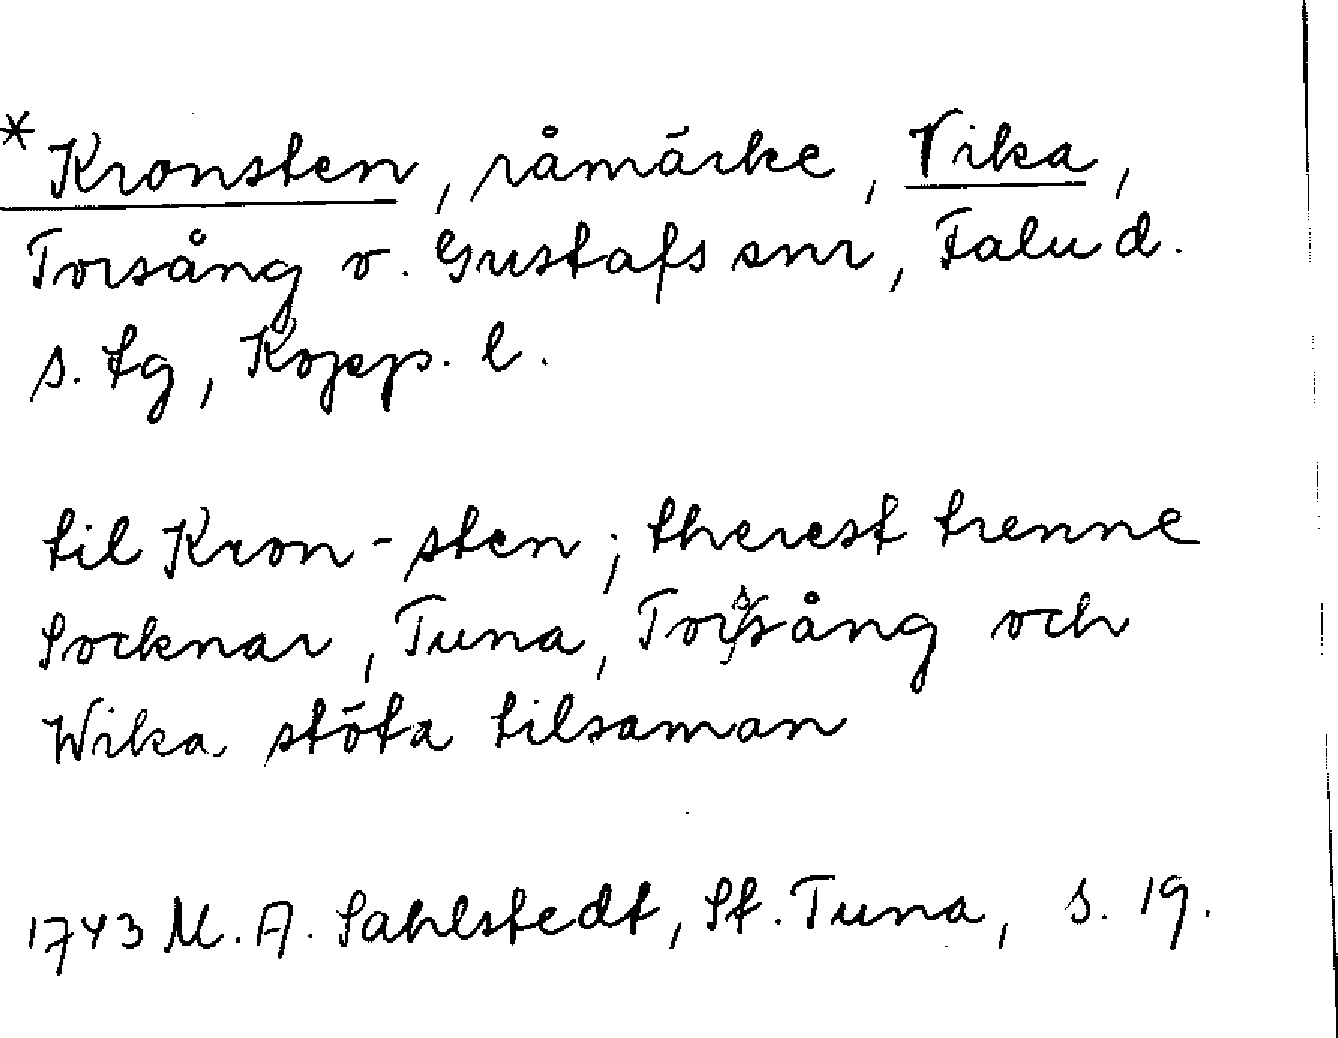 *Kronsten, råmärke, Vika,
Torsång o. Gustafs snr, Falu d.
s. tg, Kopp. l.
til Kron-sten; therest trenne
Socknar, Tuna, Torsång och
Wika stöta tilsaman
1743 M. A. Sahlstedt, St. Tuna, s. 19.